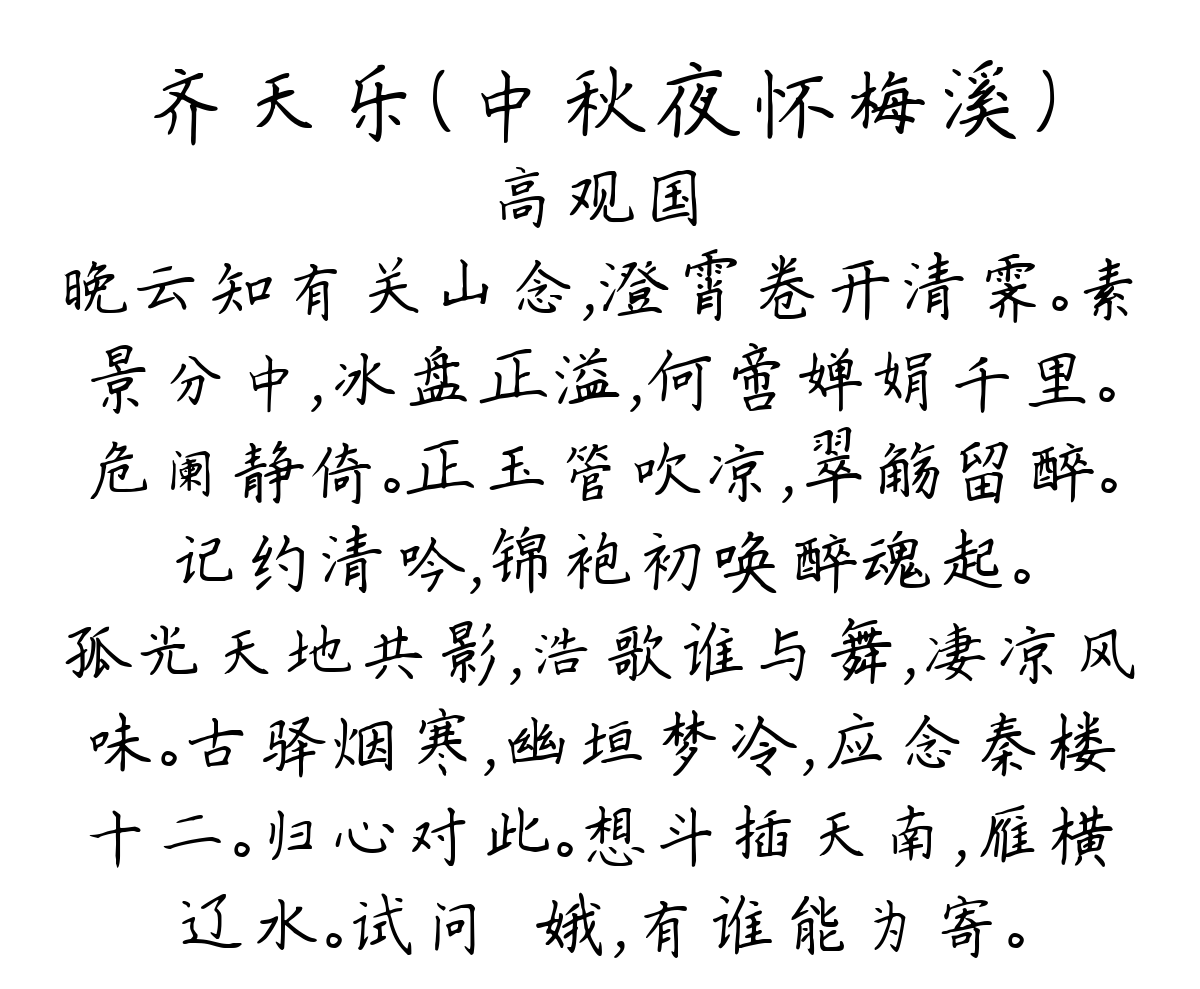 齐天乐(中秋夜怀梅溪)
高观国
晚云知有关山念,澄霄卷开清霁。素
景分中,冰盘正溢,何啻婵娟千里。
危阑静倚。正玉管吹凉,翠觞留醉。
记约清吟,锦袍初唤醉魂起。
孤光天地共影,浩歌谁与舞,凄凉风
味。古驿烟寒,幽垣梦冷,应念秦楼
十二。归心对此。想斗插天南,雁横
辽水。试问 娥,有谁能为寄。